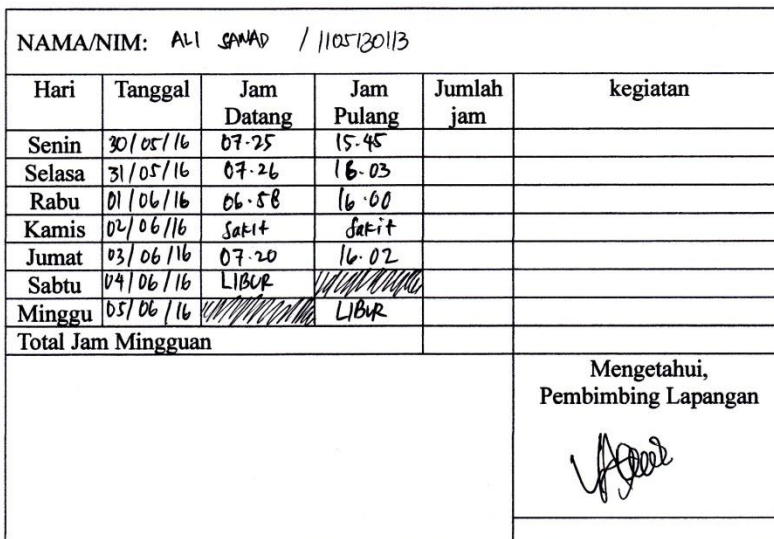 NAMA/NIM: ALI SANAD / 1105130113
Hari Tanggal Jam Datang Jam Pulang Jumlah jam kegiatan
Senin 30/05/16 07.25 15.45
Selasa 31/05/16 07.26 16.03
Rabu 01/06/16 06.58 16.00
Kamis 02/06/16 Sakit Sakit
Jumat 03/06/16 07.20 16.02
Sabtu 04/06/16 LIBUR
Minggu 05/06/16 LIBUR
Total Jam Mingguan
Mengetahui,
Pembimbing Lapangan